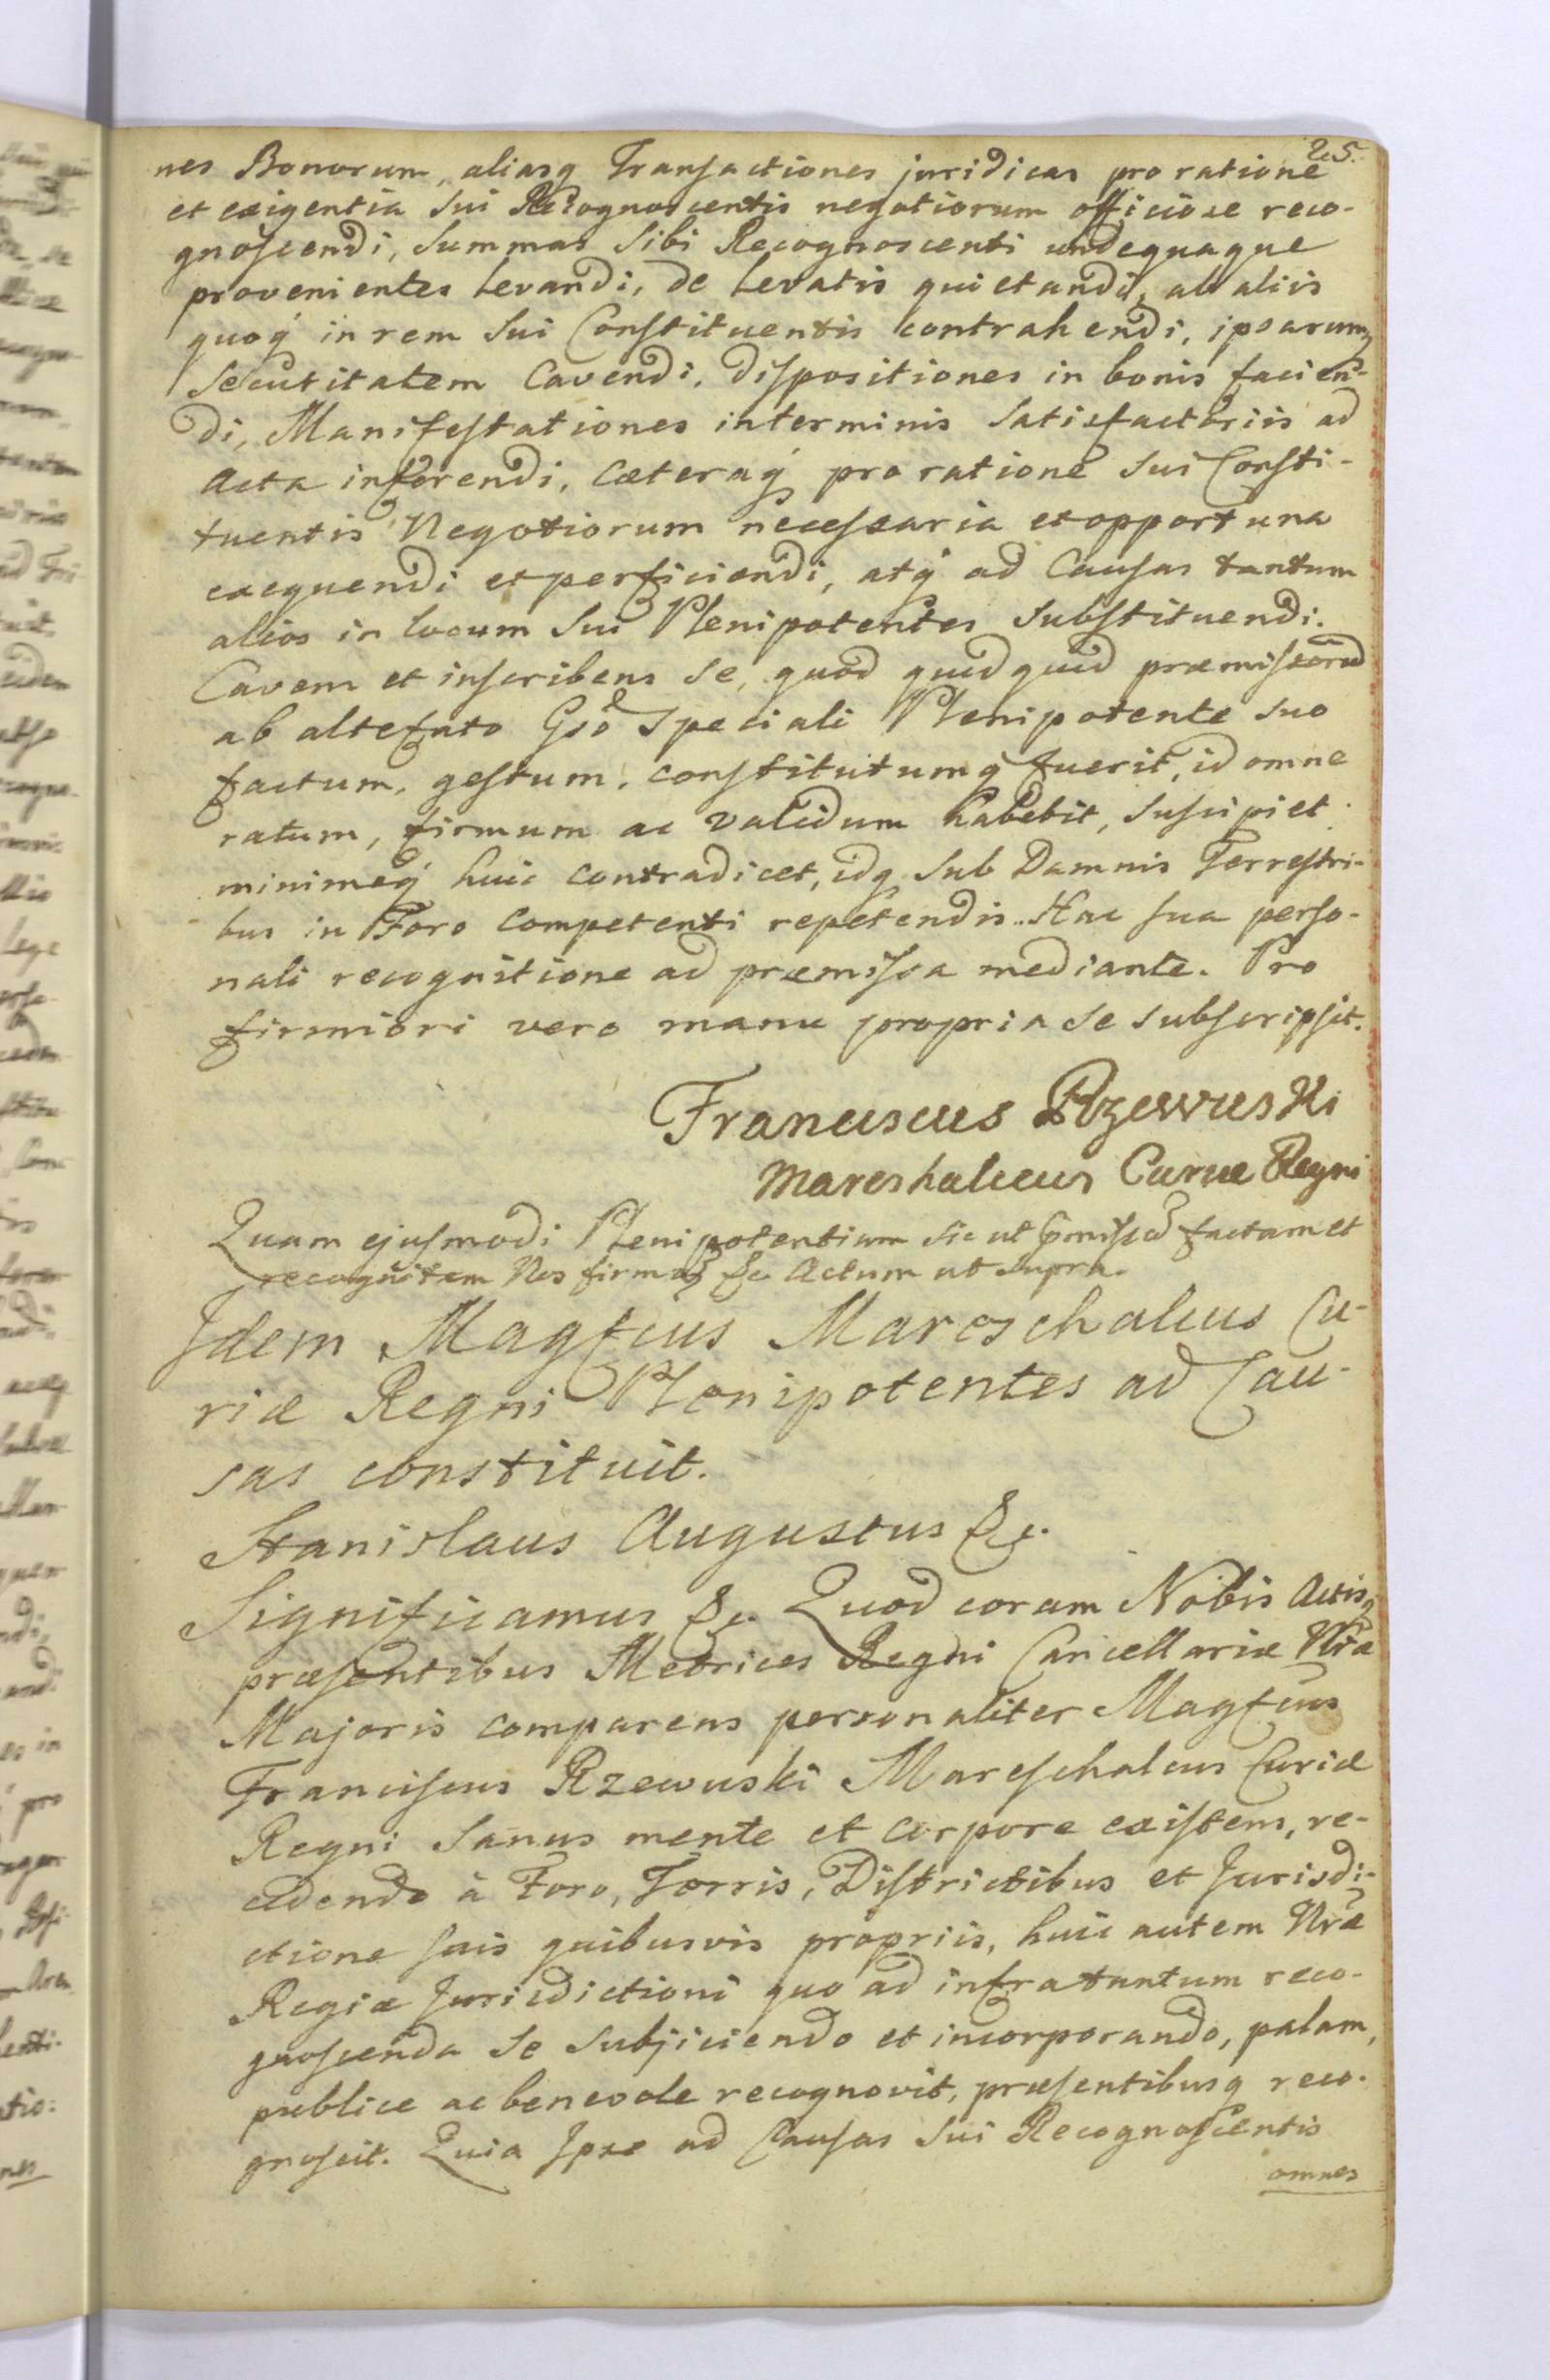 25.
nes Bonorum, aliasq Transactiones juridicas pro ratione
et exigentia sui Recognoscentis negotiorum officiose reco-
gnoscendi, summas sibi Recognoscenti undequaque
provenientes levandi, de levatis quietandi, ab aliis
quoq́ in rem sui Constituentis contrahendi, ipsarumq
securitatem cavendi, dispositiones in bonis facien-
di, Manifestationes in terminis satisfactoriis ad
Acta inferendi, cæteraq́ pro ratione sui Consti-
tuentis Negotiorum necessaria et opportuna
exequendi et perficiendi, atq́ ad Causas tantum
alios in locum sui Plenipotentes substituendi.
Cavens et inscribens se, quod quidquid præmissorũ
ab altefato Gso Speciali Plenipotente suo
factum, gestum, constitutumq fuerit, id omne
ratum, firmum ac validum habebit, suscipiet
minimeq́ huic contradicet, idq sub Damnis Terrestri-
bus in Foro competenti repetendis. Hac sua perso-
nali recognitione ad præmissa mediante. Pro
firmiori vero manu propria se subscripsit.
Franciscus Rzewuski
Mareshalcus Curiæ Regni
Quam ejusmodi Plenipotentiam sic ut præmissũ factam et
recognitam Nos firmaq &c. Actum ut supra.
Idem Magfcus Mareschalcus Cu-
riæ Regni Plenipotentes ad Cau-
sas constituit.
Stanislaus Augustus &c.
Significamus &c. Quod coram Nobis Actisq
præsentibus Metrices Regni Cancellariæ Nræ
Majoris comparens personaliter Magfcus
Franciscus Rzewuski Mareschalcus Curiæ
Regni sanus mente et corpore existens, re-
cedendo à Foro, Terris, Districtibus et Jurisdi-
ctione suis quibusvis propriis, huic autem Nræ
Regiæ Jurisdictioni quo ad infra tantum reco-
gnoscenda se subjiciendo et incorporando, palam,
publice ac benevole recognovit, præsentibusq reco-
gnoscit. Quia Ipse ad Causas sui Recognoscentis
omnes